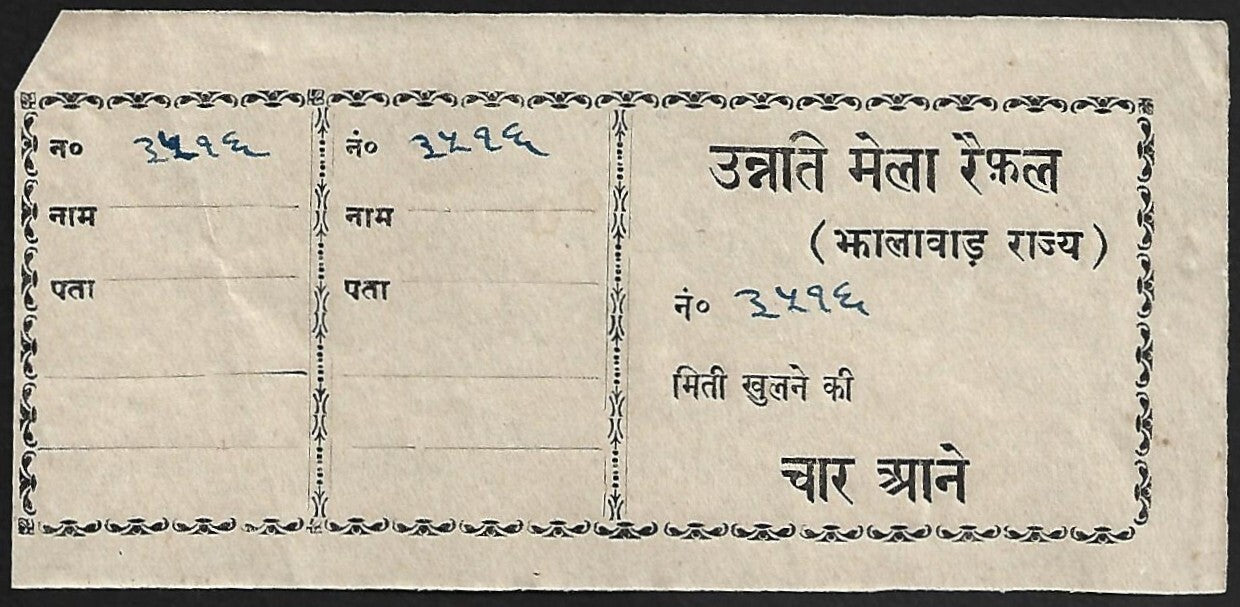 न० ३५१६
नाम
पता
नं० ३५१६
नाम
पता
उन्नति मेला रैफ़ल
(झालावाड़ राज्य)
नं० ३५१६
मिती खुलने की
चार आने